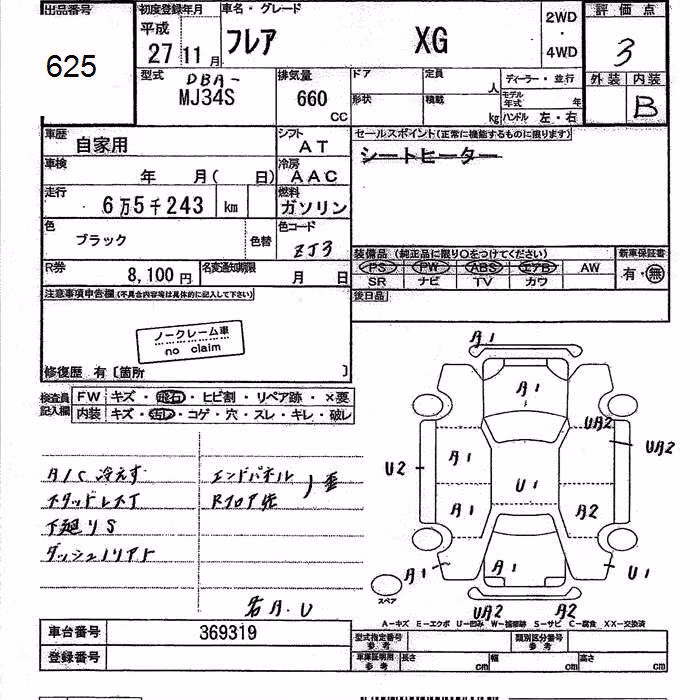 出品番号 初度登録年月 車名・グレード 2WD 評価点
625 平成 27 11月 フレア XG ・ 4WD 3
型式 DBA- MJ34S 排気量 660 CC ドア 定員 人 ディーラー・並行 外装 内装
形状 積載 kg モデル年式 年 ハンドル 左・右 B
車歴 自家用 シフト AT セールスポイント(正常に機能するものに限ります)
車検 年 月( 日) 冷房 AAC シートヒーター
走行 6万5千243 km 燃料 ガソリン
色 ブラック 色替 色コード ZJ3
装備品(純正品に限り○をつけてください) 新車保証書
PS PW ABS エアB AW 有・無
SR ナビ TV カワ
R券 8,100円 名変通知期限 月 日
後日品
注意事項申告欄(不具合内容等は具体的に記入して下さい)
ノークレーム車
no claim
修復歴 有〔箇所 〕
検査員記入欄 FW キズ・飛石・ヒビ割・リペア跡・×要
内装 キズ・汚レ・コゲ・穴・スレ・キレ・破レ
A1
A1
UA2
UA2
A1
U2
U1
A1 A2
A1 A1 U1
スペア
UA2 A2
A/C 冷えず エンドパネル
Rフロア 歪
下廻りS
各A.U
A-キズ E-エクボ U-凹み W-補修跡 S-サビ C-腐食 XX-交換済
車台番号 369319
型式指定番号 参考 類別区分番号 参考
登録番号
車庫証明用 参考 長さ cm 幅 cm 高さ cm